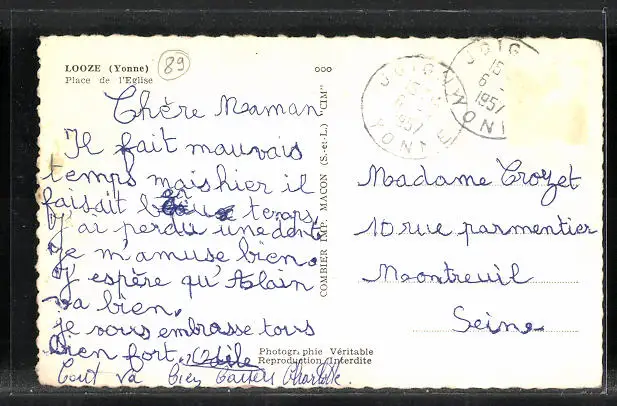 LOOZE (Yonne)
Place de l'Eglise
89
ooo
Chère Maman
Il fait mauvais
temps mais hier il
faisait beau temps,
J'ai perdu une dent
Je m'amuse bien.
J'espère qu'Alain
va bien,
Je vous embrasse tous
bien fort. Odile
Tout va bien Charlotte.
COMBIER IMP. MACON (S.-et-L.) "CIM"
Photogr. phie Véritable
Reproduction Interdite
JOIGNY
15
6
1957
YONNE
JOIG
15
6 -
1957
YONNE
Madame Crozet
10 rue parmentier
Montreuil
Seine